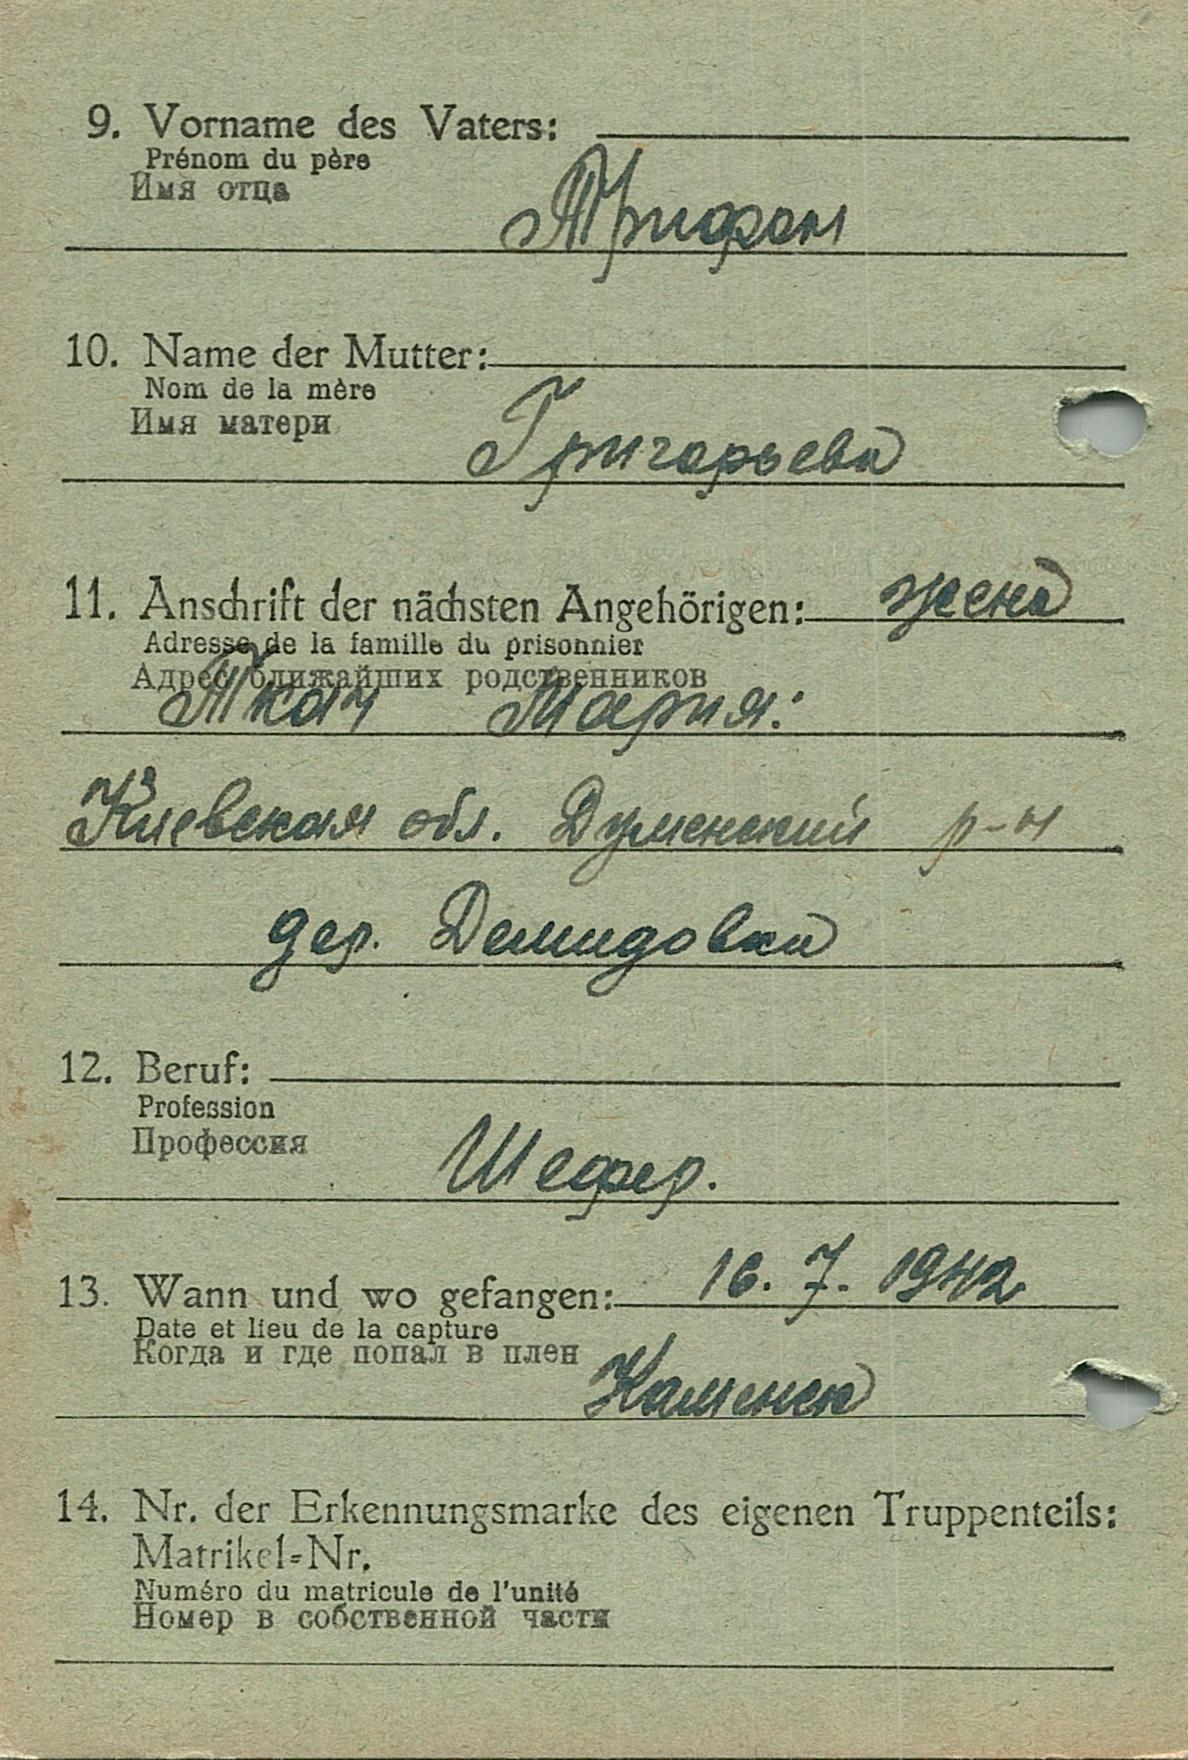 9. Vorname des Vaters:
Prénom du père
Имя отца
Трифон
10. Name der Mutter:
Nom de la mère
Имя матери
Григорьева
11. Anschrift der nächsten Angehörigen: жена
Adresse de la famille du prisonnier
Адрес ближайших родственников
Ткач Мария:
Киевская обл. Думенский р-н
дер. Демидовка
12. Beruf:
Profession
Профессия
Шефер.
13. Wann und wo gefangen: 16. 7. 1942
Date et lieu de la capture
Когда и где попал в плен
Каменск
14. Nr. der Erkennungsmarke des eigenen Truppenteils:
Matrikel-Nr.
Numéro du matricule de l'unité
Номер в собственной части